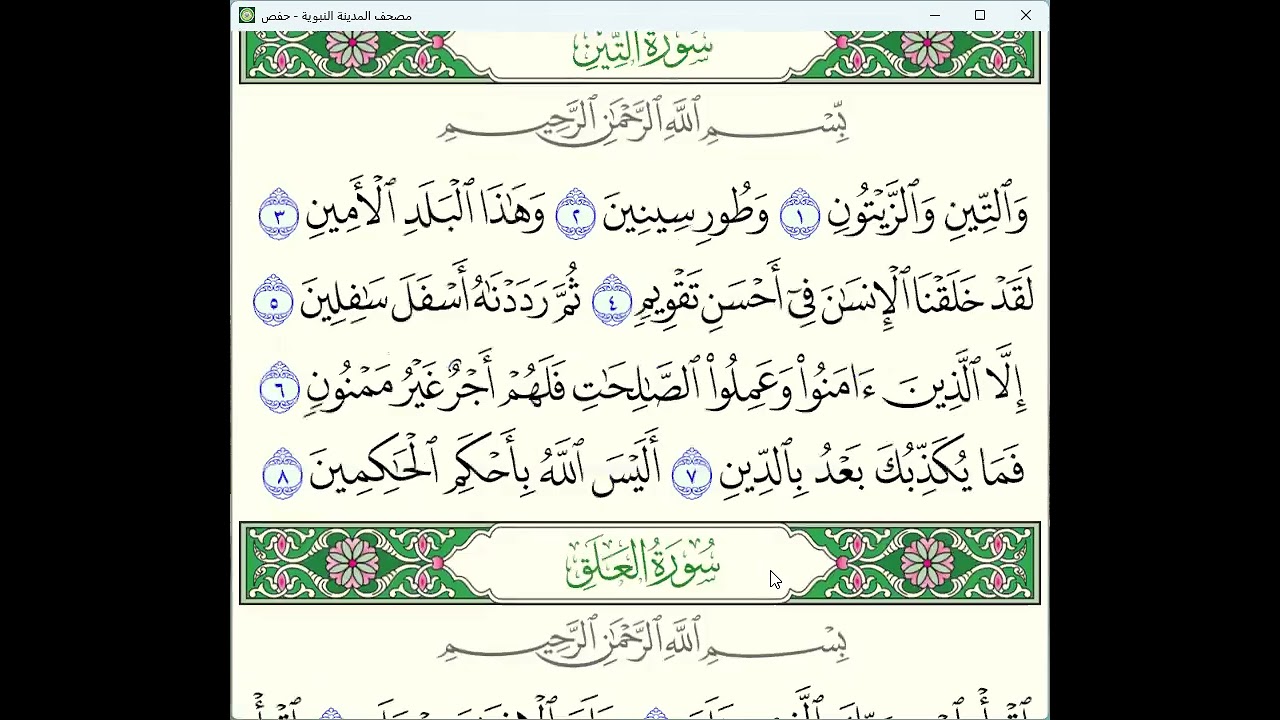 مصحف المدينة النبوية - حفص
سُورَةُ التِّينِ
بِّسْمِ ٱللَّهِ ٱلرَّحْمَٰنِ ٱلرَّحِيمِ
وَٱلتِّينِ وَٱلزَّيْتُونِ ١ وَطُورِ سِينِينَ ٢ وَهَٰذَا ٱلْبَلَدِ ٱلْأَمِينِ ٣
لَقَدْ خَلَقْنَا ٱلْإِنسَٰنَ فِىٓ أَحْسَنِ تَقْوِيمٍ ٤ ثُمَّ رَدَدْنَٰهُ أَسْفَلَ سَٰفِلِينَ ٥
إِلَّا ٱلَّذِينَ ءَامَنُوا۟ وَعَمِلُوا۟ ٱلصَّٰلِحَٰتِ فَلَهُمْ أَجْرٌ غَيْرُ مَمْنُونٍ ٦
فَمَا يُكَذِّبُكَ بَعْدُ بِٱلدِّينِ ٧ أَلَيْسَ ٱللَّهُ بِأَحْكَمِ ٱلْحَٰكِمِينَ ٨
سُورَةُ العَلَقِ
بِسْمِ ٱللَّهِ ٱلرَّحْمَٰنِ ٱلرَّحِيمِ